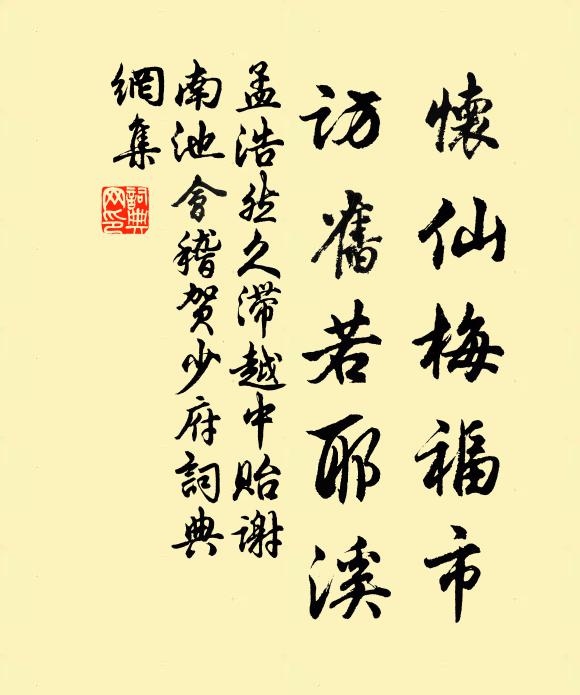 懷仙梅福市
訪舊若耶溪
孟浩然久滯越中貽謝
南池會稽贺少府詞典
網集
詞典
网印